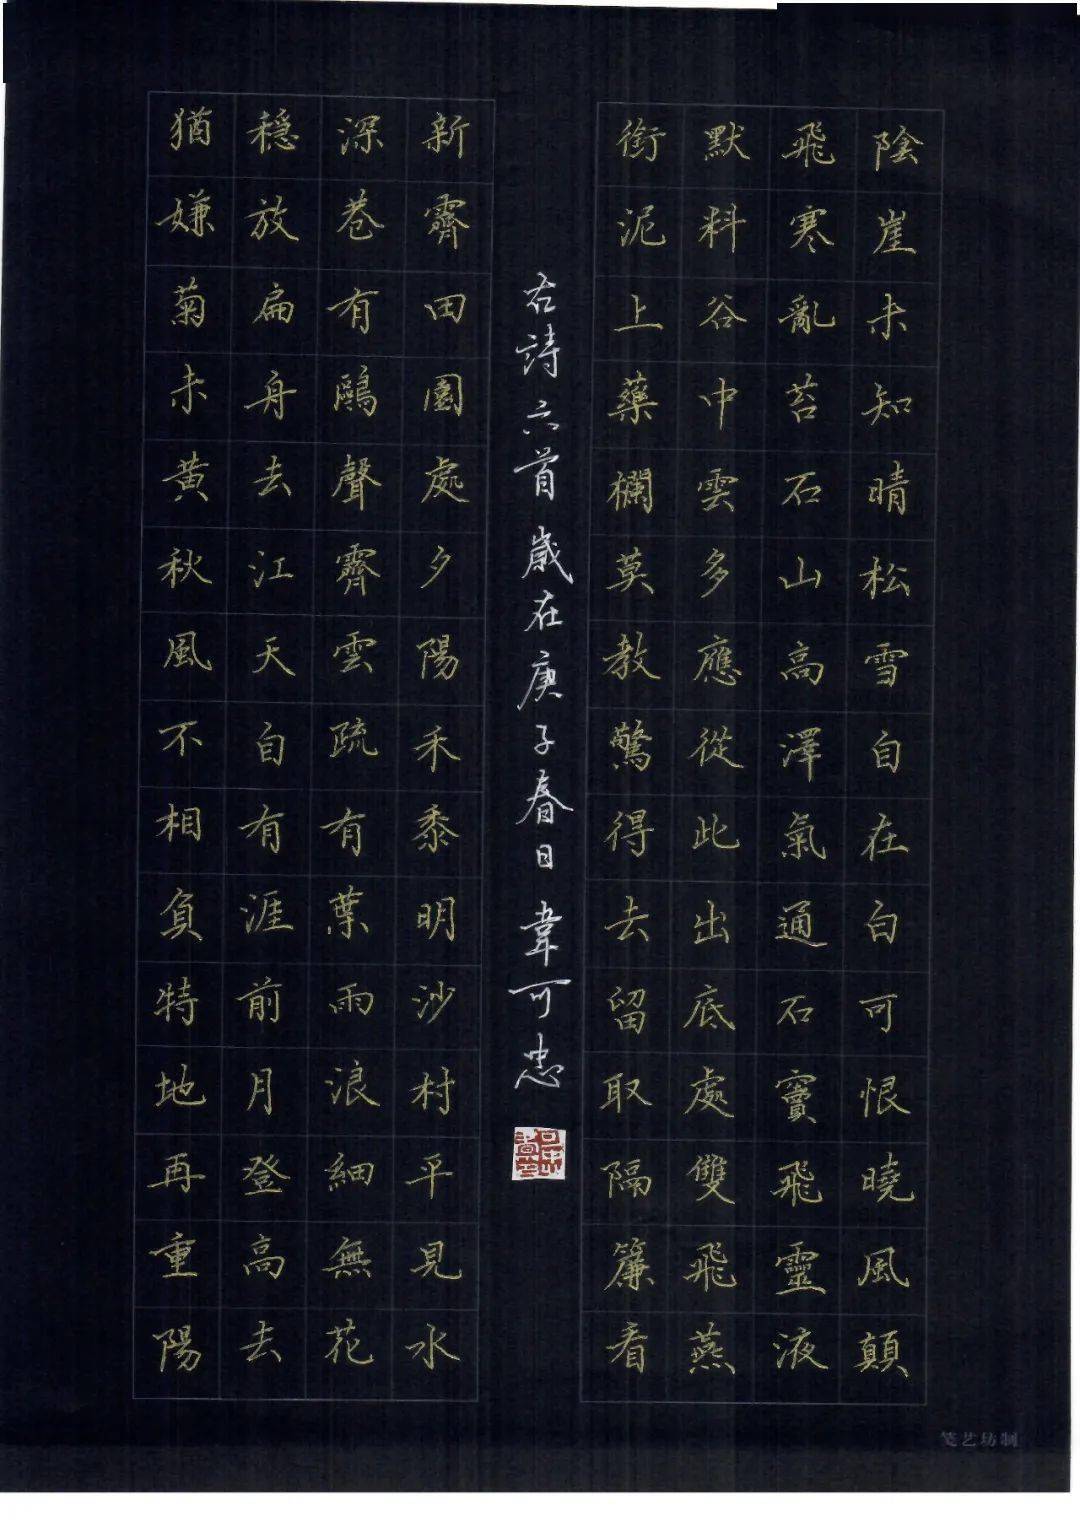 陰崖未知晴松雪自在白可恨曉風顛
飛寒亂苔石山高澤氣通石竇飛靈液
默料谷中雲多應從此出底處雙飛燕
銜泥上藥欄莫教驚得去留取隔簾看
古詩六首歲在庚子春日韋可忠
新霽田園處夕陽禾黍明沙村平見水
深巷有鷗聲霽雲疏有葉雨浪細無花
穩放扁舟去江天自有涯前月登高去
猶嫌菊未黃秋風不相負特地再重陽
笺艺坊制